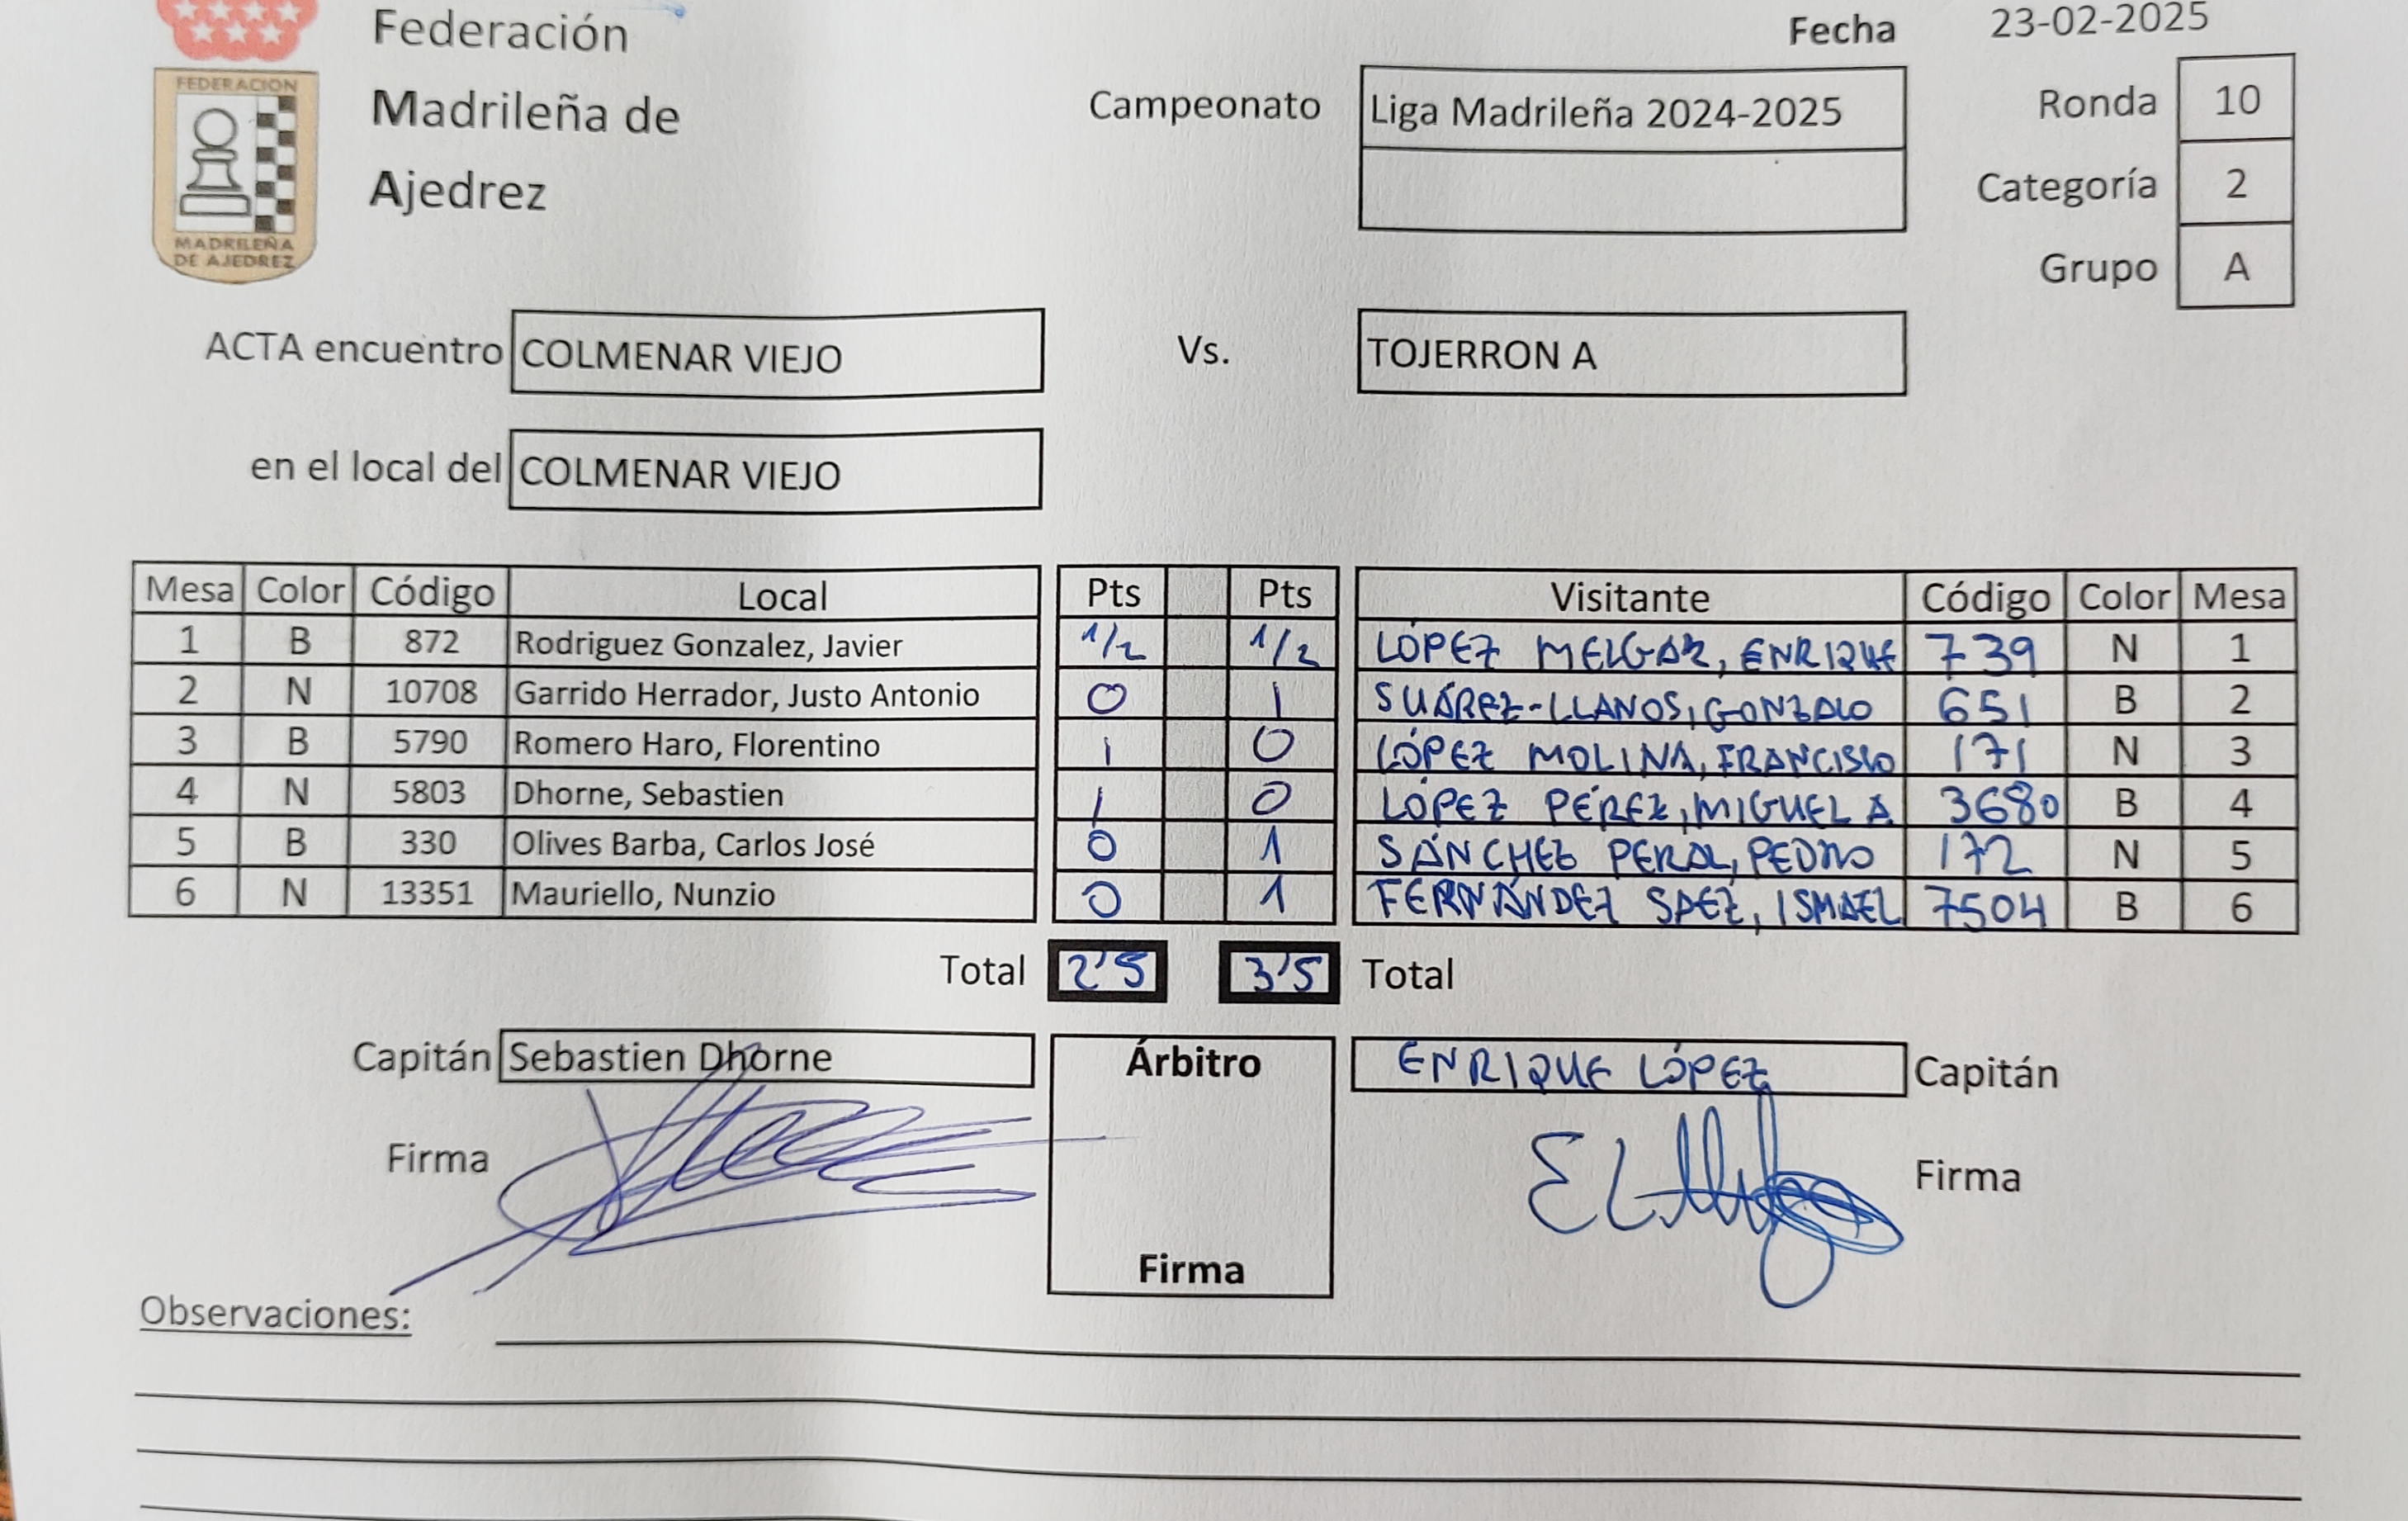 Federación
Madrileña de
Ajedrez
FEDERACION
MADRILEÑA
DE AJEDREZ
Fecha 23-02-2025
Campeonato Liga Madrileña 2024-2025
Ronda 10
Categoría 2
Grupo A
ACTA encuentro COLMENAR VIEJO Vs. TOJERRON A
en el local del COLMENAR VIEJO
Mesa Color Código Local Pts Pts Visitante Código Color Mesa
1 B 872 Rodriguez Gonzalez, Javier 1/2 1/2 LÓPEZ MELGAR, ENRIQUE 739 N 1
2 N 10708 Garrido Herrador, Justo Antonio 0 1 SUÁREZ-LLANOS, GONZALO 651 B 2
3 B 5790 Romero Haro, Florentino 1 0 LÓPEZ MOLINA, FRANCISCO 171 N 3
4 N 5803 Dhorne, Sebastien 1 0 LÓPEZ PÉREZ, MIGUEL A 3680 B 4
5 B 330 Olives Barba, Carlos José 0 1 SÁNCHEZ PERAL, PEDRO 172 N 5
6 N 13351 Mauriello, Nunzio 0 1 FERNÁNDEZ SAEZ, ISMAEL 7504 B 6
Total 2'5 3'5 Total
Capitán Sebastien Dhorne Árbitro ENRIQUE LÓPEZ Capitán
Firma Firma
Firma
Observaciones: